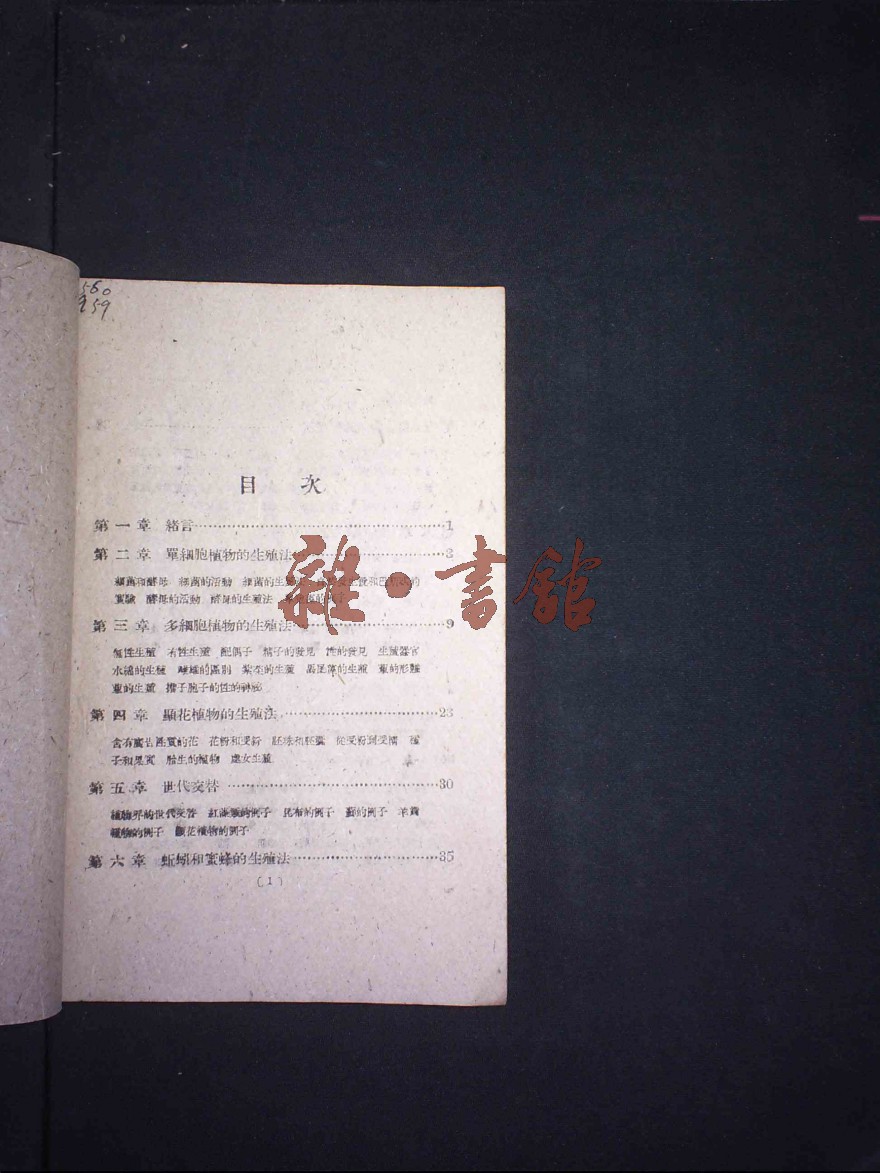 560
959
目 次
第一章 緒言…………………………1
第二章 單細胞植物的生殖法…………3
細菌和酵母 細菌的活動 細菌的生殖法
實驗 酵母的活動 酵母的生殖法
第三章 多細胞植物的生殖法…………9
無性生殖 有性生殖 配偶子 精子的發見 性的發見 生殖器官
水綿的生殖 雌雄的區別 紫菜的生殖 馬尾藻的生殖 蕈的形態
蕈的生殖 擔子胞子的性的神祕
第四章 顯花植物的生殖法…………23
含有廣告性質的花 花粉和受粉 胚珠和胚囊 從受粉到受精 種
子和果實 胎生的植物 處女生殖
第五章 世代交替…………30
植物界的世代交替 紅藻類的例子 昆布的例子 蘚的例子 羊齒
植物的例子 顯花植物的例子
第六章 蚯蚓和蜜蜂的生殖法…………35
(1)
雜·書館